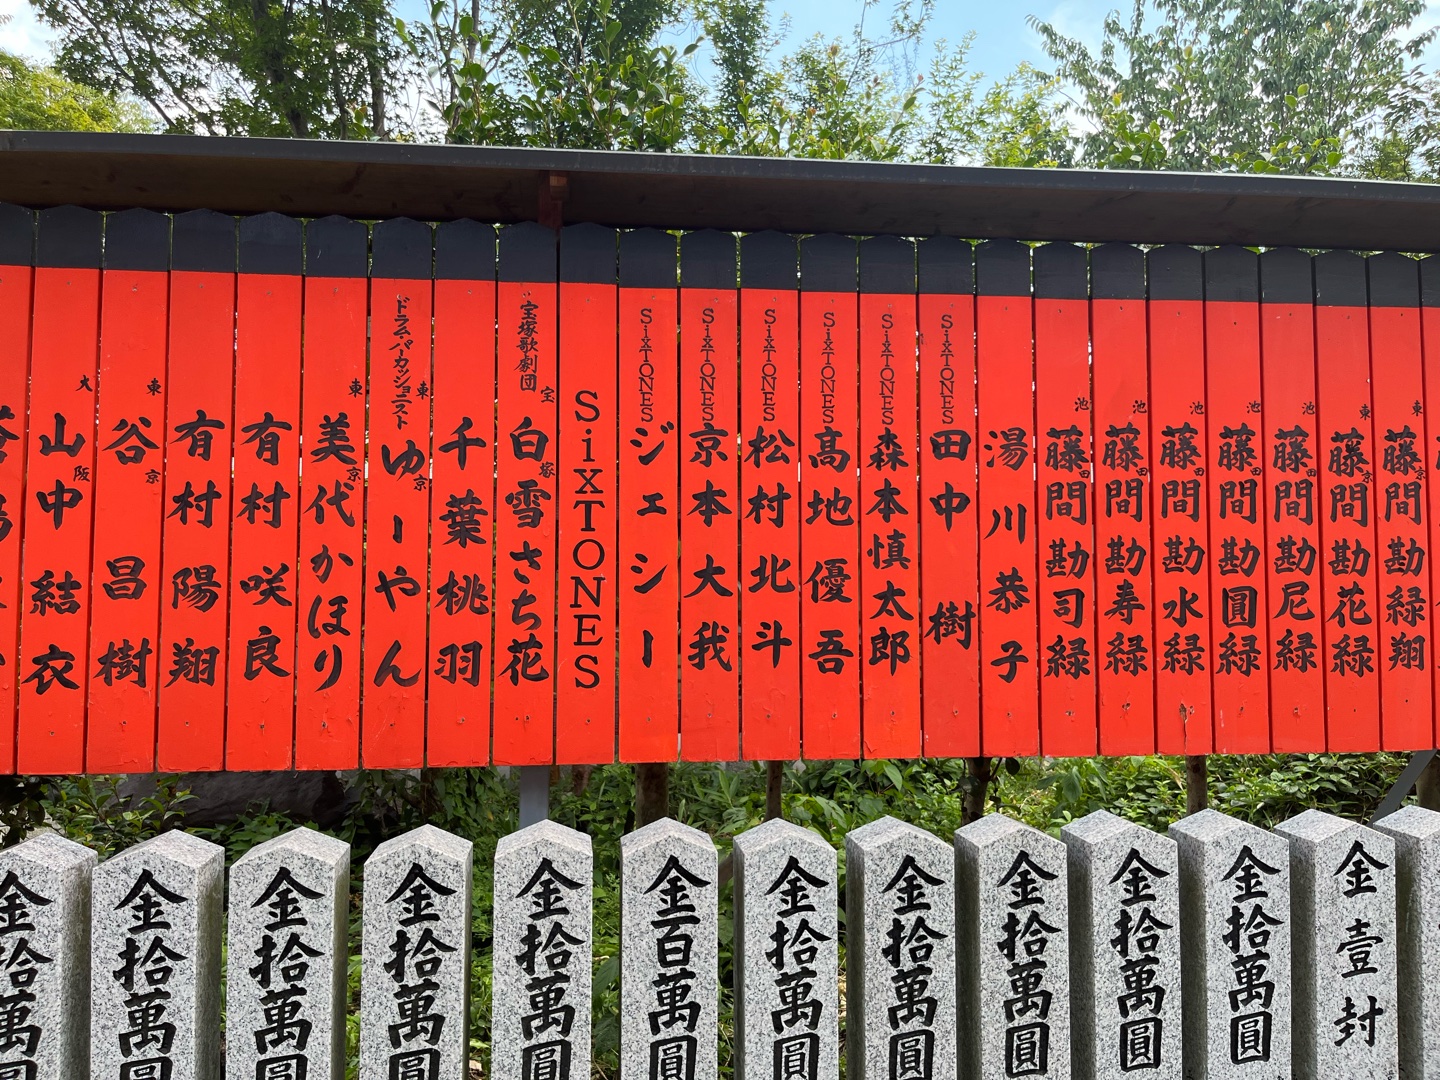 東京 藤間勘緑翔
東京 藤間勘花緑
池田 藤間勘尼緑
池田 藤間勘圓緑
池田 藤間勘水緑
池田 藤間勘寿緑
池田 藤間勘司緑
湯川恭子
SixTONES 田中樹
SixTONES 森本慎太郎
SixTONES 髙地優吾
SixTONES 松村北斗
SixTONES 京本大我
SixTONES ジェシー
SixTONES
宝塚歌劇団 宝塚 白雪さち花
千葉桃羽
ドラム・パーカッショニスト 東京 ゆーやん
東京 美代かほり
有村咲良
有村陽翔
東京 谷昌樹
大阪 山中結衣
金壹封
金拾萬圓
金拾萬圓
金拾萬圓
金拾萬圓
金拾萬圓
金百萬圓
金拾萬圓
金拾萬圓
金拾萬圓
金拾萬圓
金拾萬